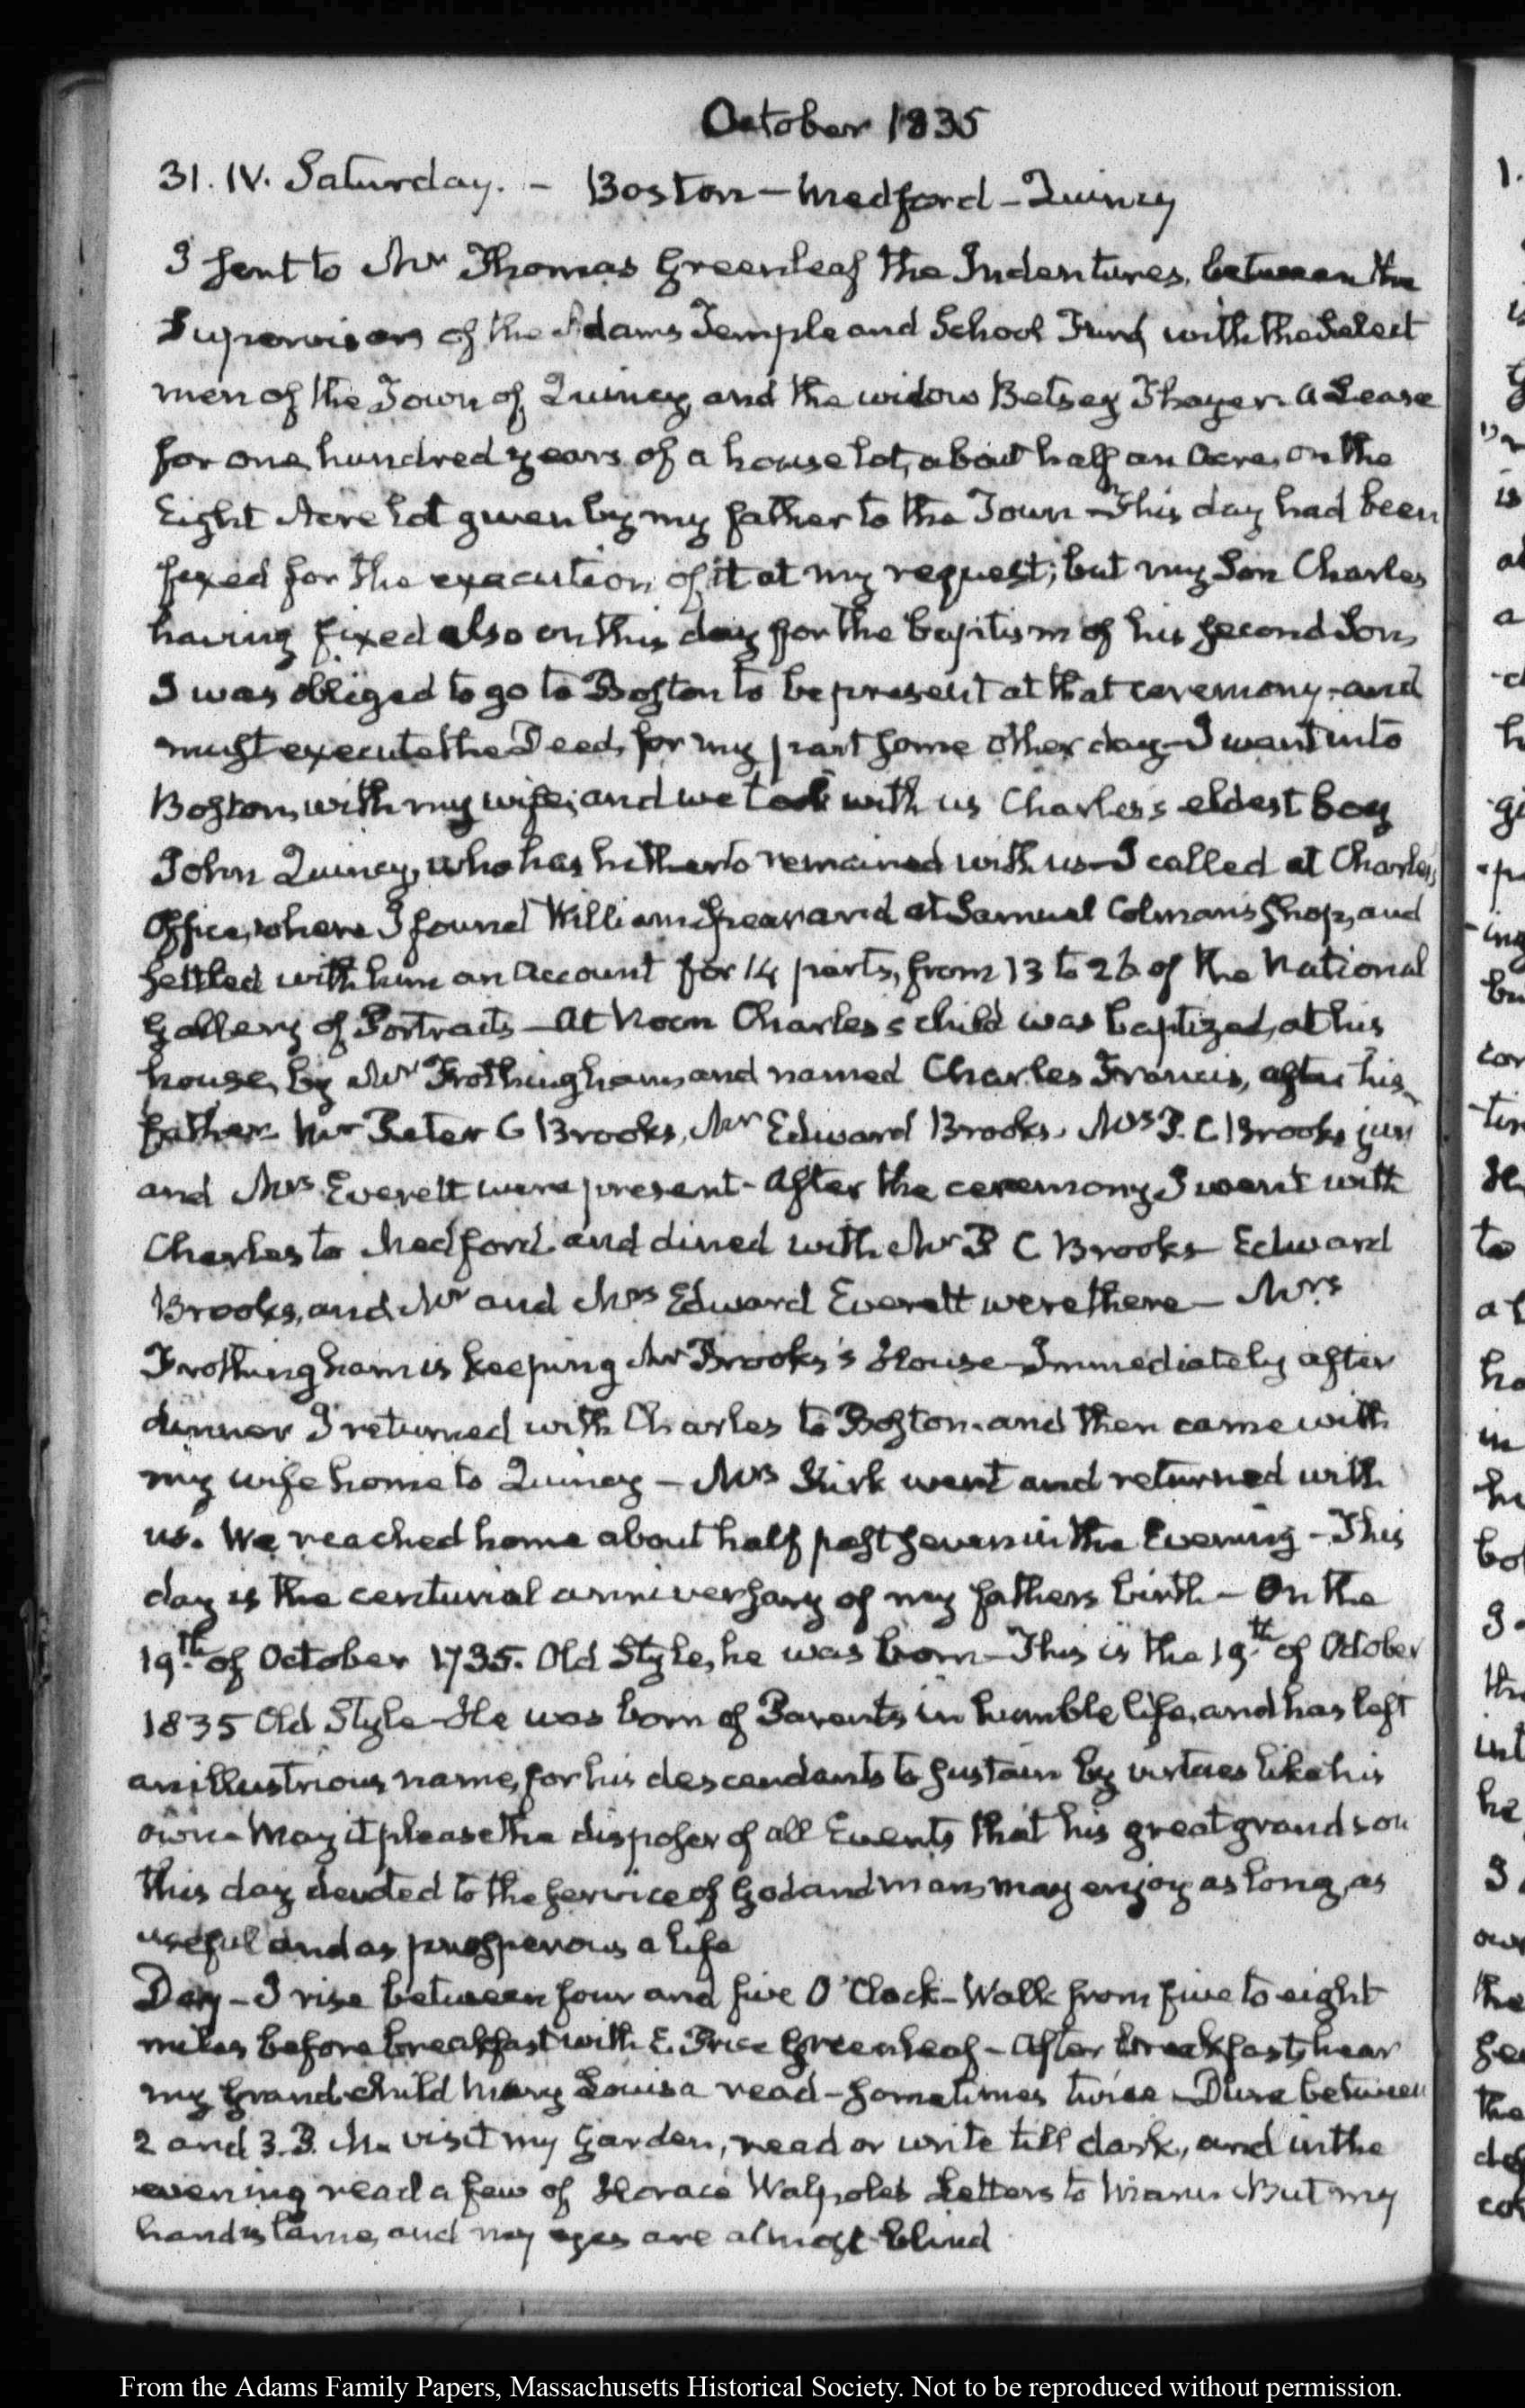 October 1835
31. IV. Saturday. - Boston - Medford - Quincy
I sent to Mr Thomas Greenleaf the Indentures, between the
Supervisors of the Adams Temple and School Fund with the Select
men of the Town of Quincy, and the widow Betsey Thayer. a Lease
for one hundred years of a house lot, about half an Acre, on the
Eight Acre lot given by my father to the Town - This day had been
fixed for the execution of it at my request; but my Son Charles
having fixed also on this day for the baptism of his second Son,
I was obliged to go to Boston to be present at that ceremony, and
must execute the Deed, for my part some other day - I went into
Boston, with my wife; and we took with us Charles's eldest boy
John Quincy, who has hitherto remained with us - I called at Charles's
Office, where I found William Spear and at Samuel Colman's Shop, and
settled with him an Account for 14 parts, from 13 to 26 of the National
Gallery of Portraits - At Noon Charles's child was baptized, at his
house, by Mr Frothingham, and named Charles Francis, after his
father. Mr Peter C Brooks, Mr Edward Brooks, Mrs P. C Brooks jun
and Mrs Everett were present - After the ceremony I went with
Charles to Medford, and dined with Mr P C Brooks - Edward
Brooks, and Mr and Mrs Edward Everett were there - Mrs
Frothingham is keeping Mr Brooks's House - Immediately after
dinner I returned with Charles to Boston, and then came with
my wife home to Quincy - Mrs Kirk went and returned with
us. We reached home about half past seven in the Evening - This
day is the centurial anniversary of my fathers birth - On the
19th of October 1735. Old Style, he was born - This is the 19th of October
1835 Old Style - He was born of Parents in humble life, and has left
an illustrious name, for his descendants to sustain by virtues like his
own - May it please the disposer of all Events that his great grandson
this day devoted to the service of God and man, may enjoy as long, as
useful and as prosperous a life
Day - I rise between four and five O'Clock - Walk from five to eight
miles before breakfast with E. Price Greenleaf - After breakfast, hear
my Grandchild Mary Louisa read - sometimes twice - Dine between
2 and 3. P. M. visit my Garden, read or write till dark, and in the
evening read a few of Horace Walpoles Letters to Mann. But my
hand is lame, and my eyes are almost blind
From the Adams Family Papers, Massachusetts Historical Society. Not to be reproduced without permission.